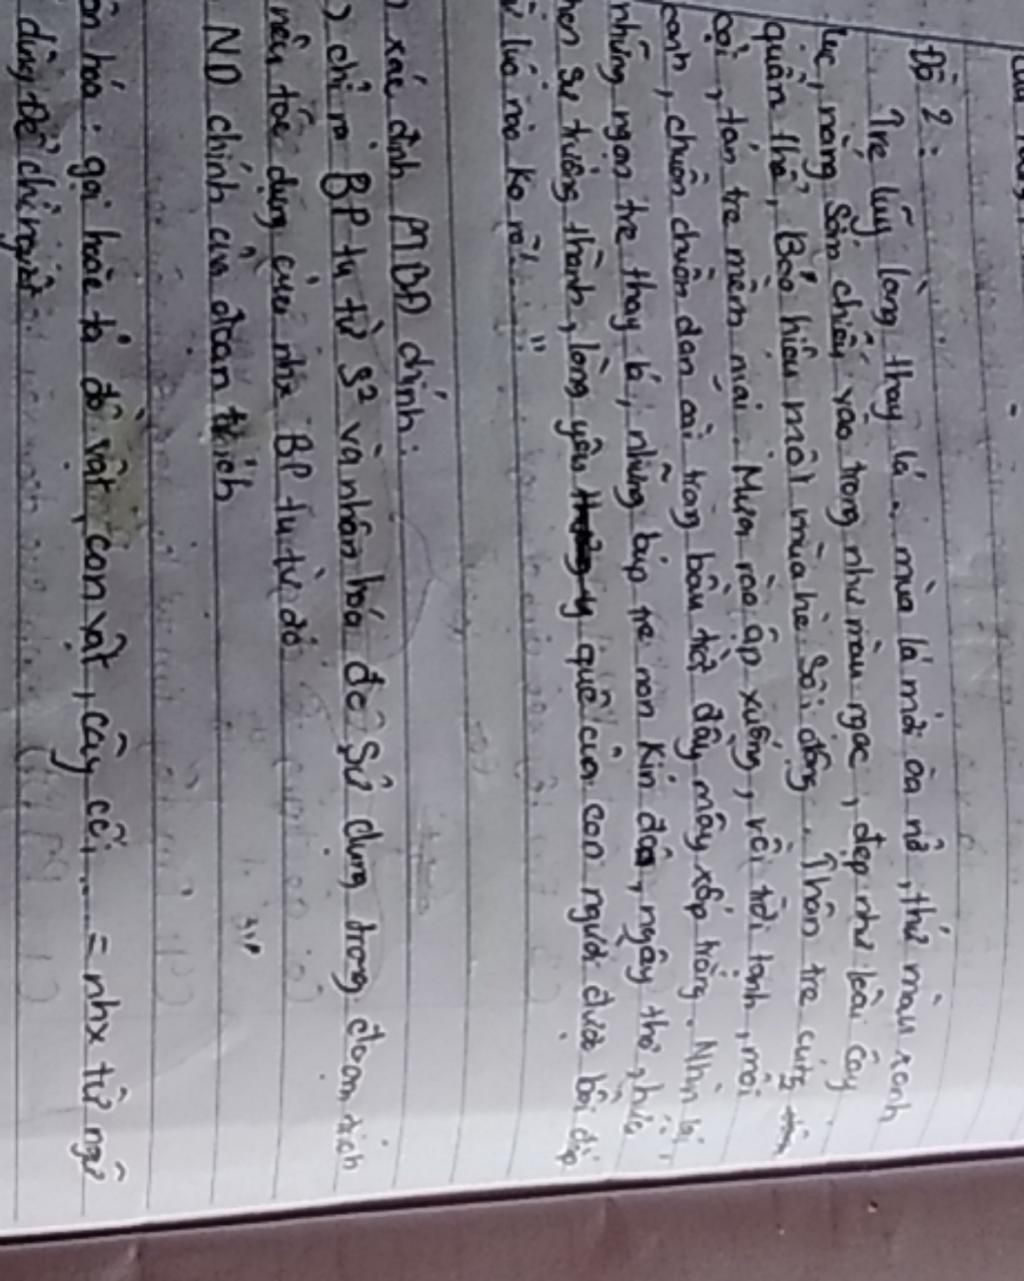 Đề 2:
Tre lũy làng thay lá... mùa lá mới oà nở, thứ màu xanh
lục, nắng sớm chiếu vào trong như màu ngọc, đẹp như loài cây
quần thể, Báo hiệu một mùa hè sôi động. Thân tre cứng
cỏi, tán tre mềm mại. Mưa rào ập xuống, rồi trời tạnh, mối
cánh, chuồn chuồn đan cài trong bầu trời đầy mây xốp trắng. Nhìn lên
những ngọn tre thay lá, những búp tre non kín đáo, ngây thơ, hứa
hẹn sự trưởng thành, lòng yêu quê của con người được bồi đắp
từ lúc nào ko rõ!..."
) xác định PTBĐ chính.
) chỉ ra BP tu từ s² và nhân hóa đc sử dụng trong đoạn trích
nêu tác dụng của nhx BP tu từ đó
ND chính của đoạn trích
ân hóa: gọi hoặc tả đồ vật, con vật, cây cối,... = nhx từ ngữ
dùng để chỉ người.